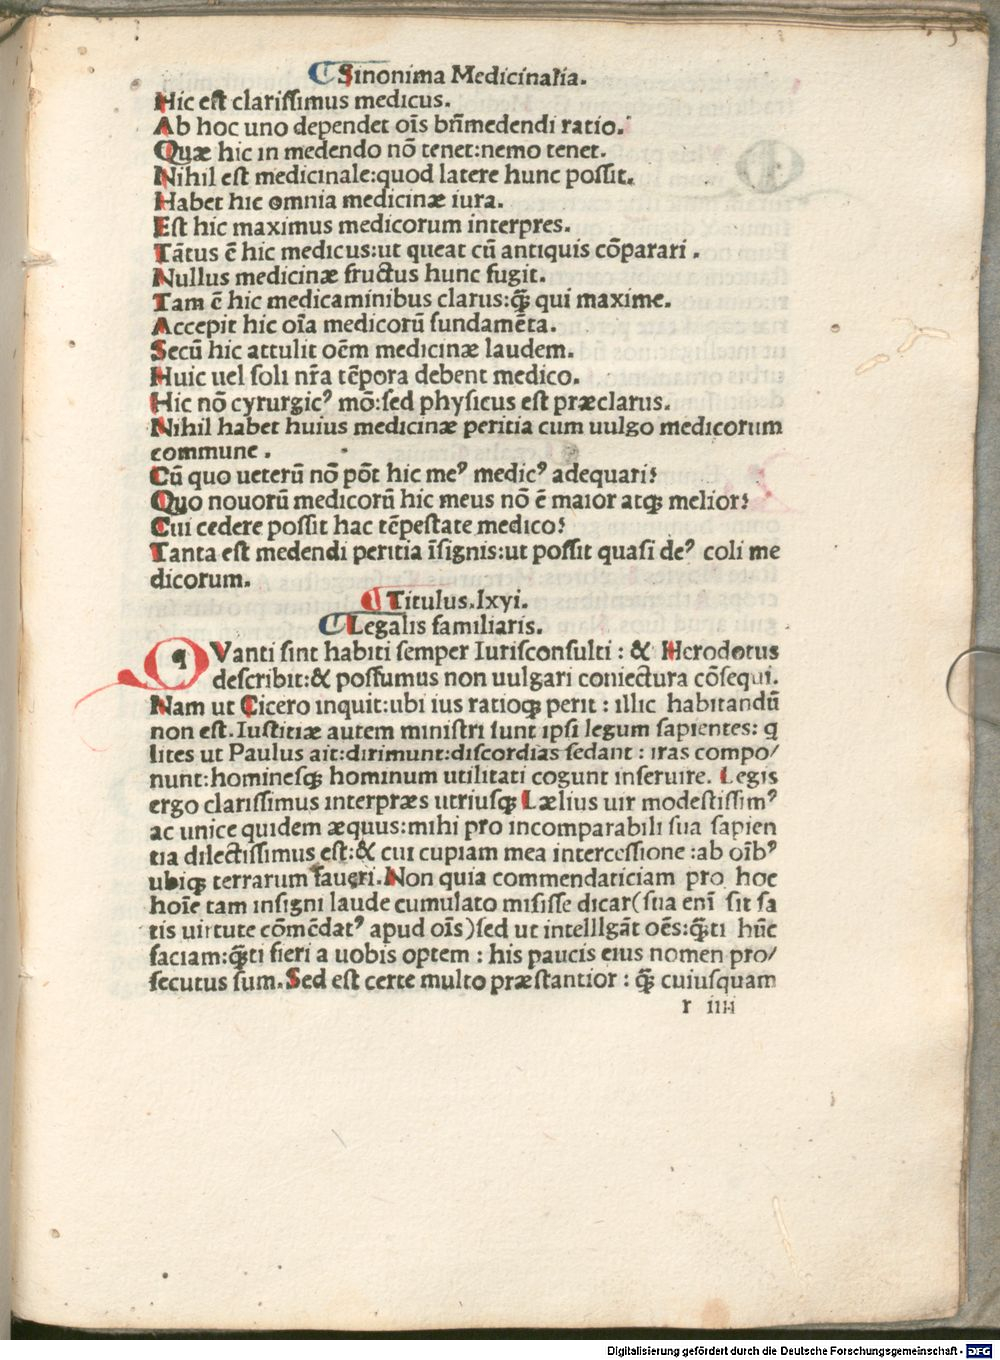 Sinonima Medicinalia.
Hic est clarissimus medicus.
Ab hoc uno dependet oīs bn̄medendi ratio.
Quæ hic in medendo nō tenet:nemo tenet.
Nihil est medicinale:quod latere hunc possit.
Habet hic omnia medicinæ iura.
Est hic maximus medicorum interpres.
Tātus ē hic medicus:ut queat cū antiquis cōparari.
Nullus medicinæ fructus hunc fugit.
Tam ē hic medicaminibus clarus:q̄ꝫ qui maxime.
Accepit hic oīa medicorū fundamēta.
Secū hic attulit oēm medicinæ laudem.
Huic uel soli nr̄a tēpora debent medico.
Hic nō cyrurgicꝰ mō:sed physicus est præclarus.
Nihil habet huius medicinæ peritia cum uulgo medicorum
commune.
Cū quo ueterū nō pōt hic meꝰ medicꝰ adequari?
Quo nouorū medicorū hic meus nō ē maior atqꝫ melior?
Cui cedere possit hac tēpestate medico?
Tanta est medendi peritia īsignis:ut possit quasi deꝰ coli me
dicorum.
Titulus.lxyi.
Legalis familiaris.
QVanti sint habiti semper Iurisconsulti : & Herodotus
describit:& possumus non uulgari coniectura cōsequi.
Nam ut Cicero inquit:ubi ius ratioqꝫ perit : illic habitandū
non est.Iustitiæ autem ministri sunt ipsi legum sapientes: q
lites ut Paulus ait:dirimunt:discordias sedant : iras compo/
nunt:hominesqꝫ hominum utilitati cogunt inseruire. Legis
ergo clarissimus interpræs utriusqꝫ Lælius uir modestissimꝰ
ac unice quidem æquus:mihi pro incomparabili sua sapien
tia dilectissimus est:& cui cupiam mea intercessione :ab oībꝰ
ubiqꝫ terrarum faueri.Non quia commendaticiam pro hoc
hoīe tam insigni laude cumulato misisse dicar(sua enī sit sa
tis uirtute cōmēdatꝰ apud oīs)sed ut intelllgāt oēs:q̄ꝫti hūc
faciam:q̄ꝫti fieri a uobis optem : his paucis eius nomen pro/
secutus sum.Sed est certe multo præstantior : q̄ꝫ cuiusquam
r iiii
Digitalisierung gefördert durch die Deutsche Forschungsgemeinschaft - DFG